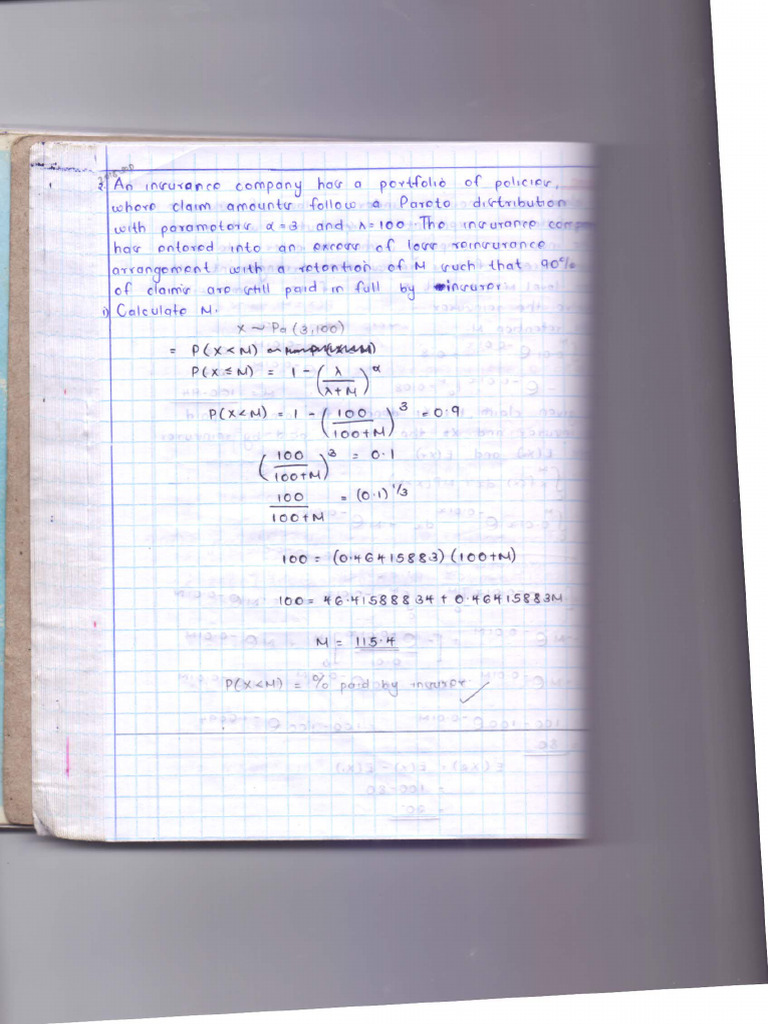 2. An insurance company has a portfolio of policies,
where claim amounts follow a Pareto distribution
with parameters α = 3 and λ = 100. The insurance
has entered into an excess of loss reinsurance
arrangement with a retention of M such that 90%
of claims are still paid in full by insurer
i) Calculate M.
X ~ Pa (3,100)
= P(X < M)
P(X ≤ M) = 1 - (λ / λ+M)^α
P(X < M) = 1 - (100 / 100+M)^3 = 0.9
(100 / 100+M)^3 = 0.1
100 / 100+M = (0.1)^1/3
100 = (0.46415883) (100+M)
100 = 46.41588834 + 0.46415883M
M = 115.4
P(X < M) = % paid by insurer ✓